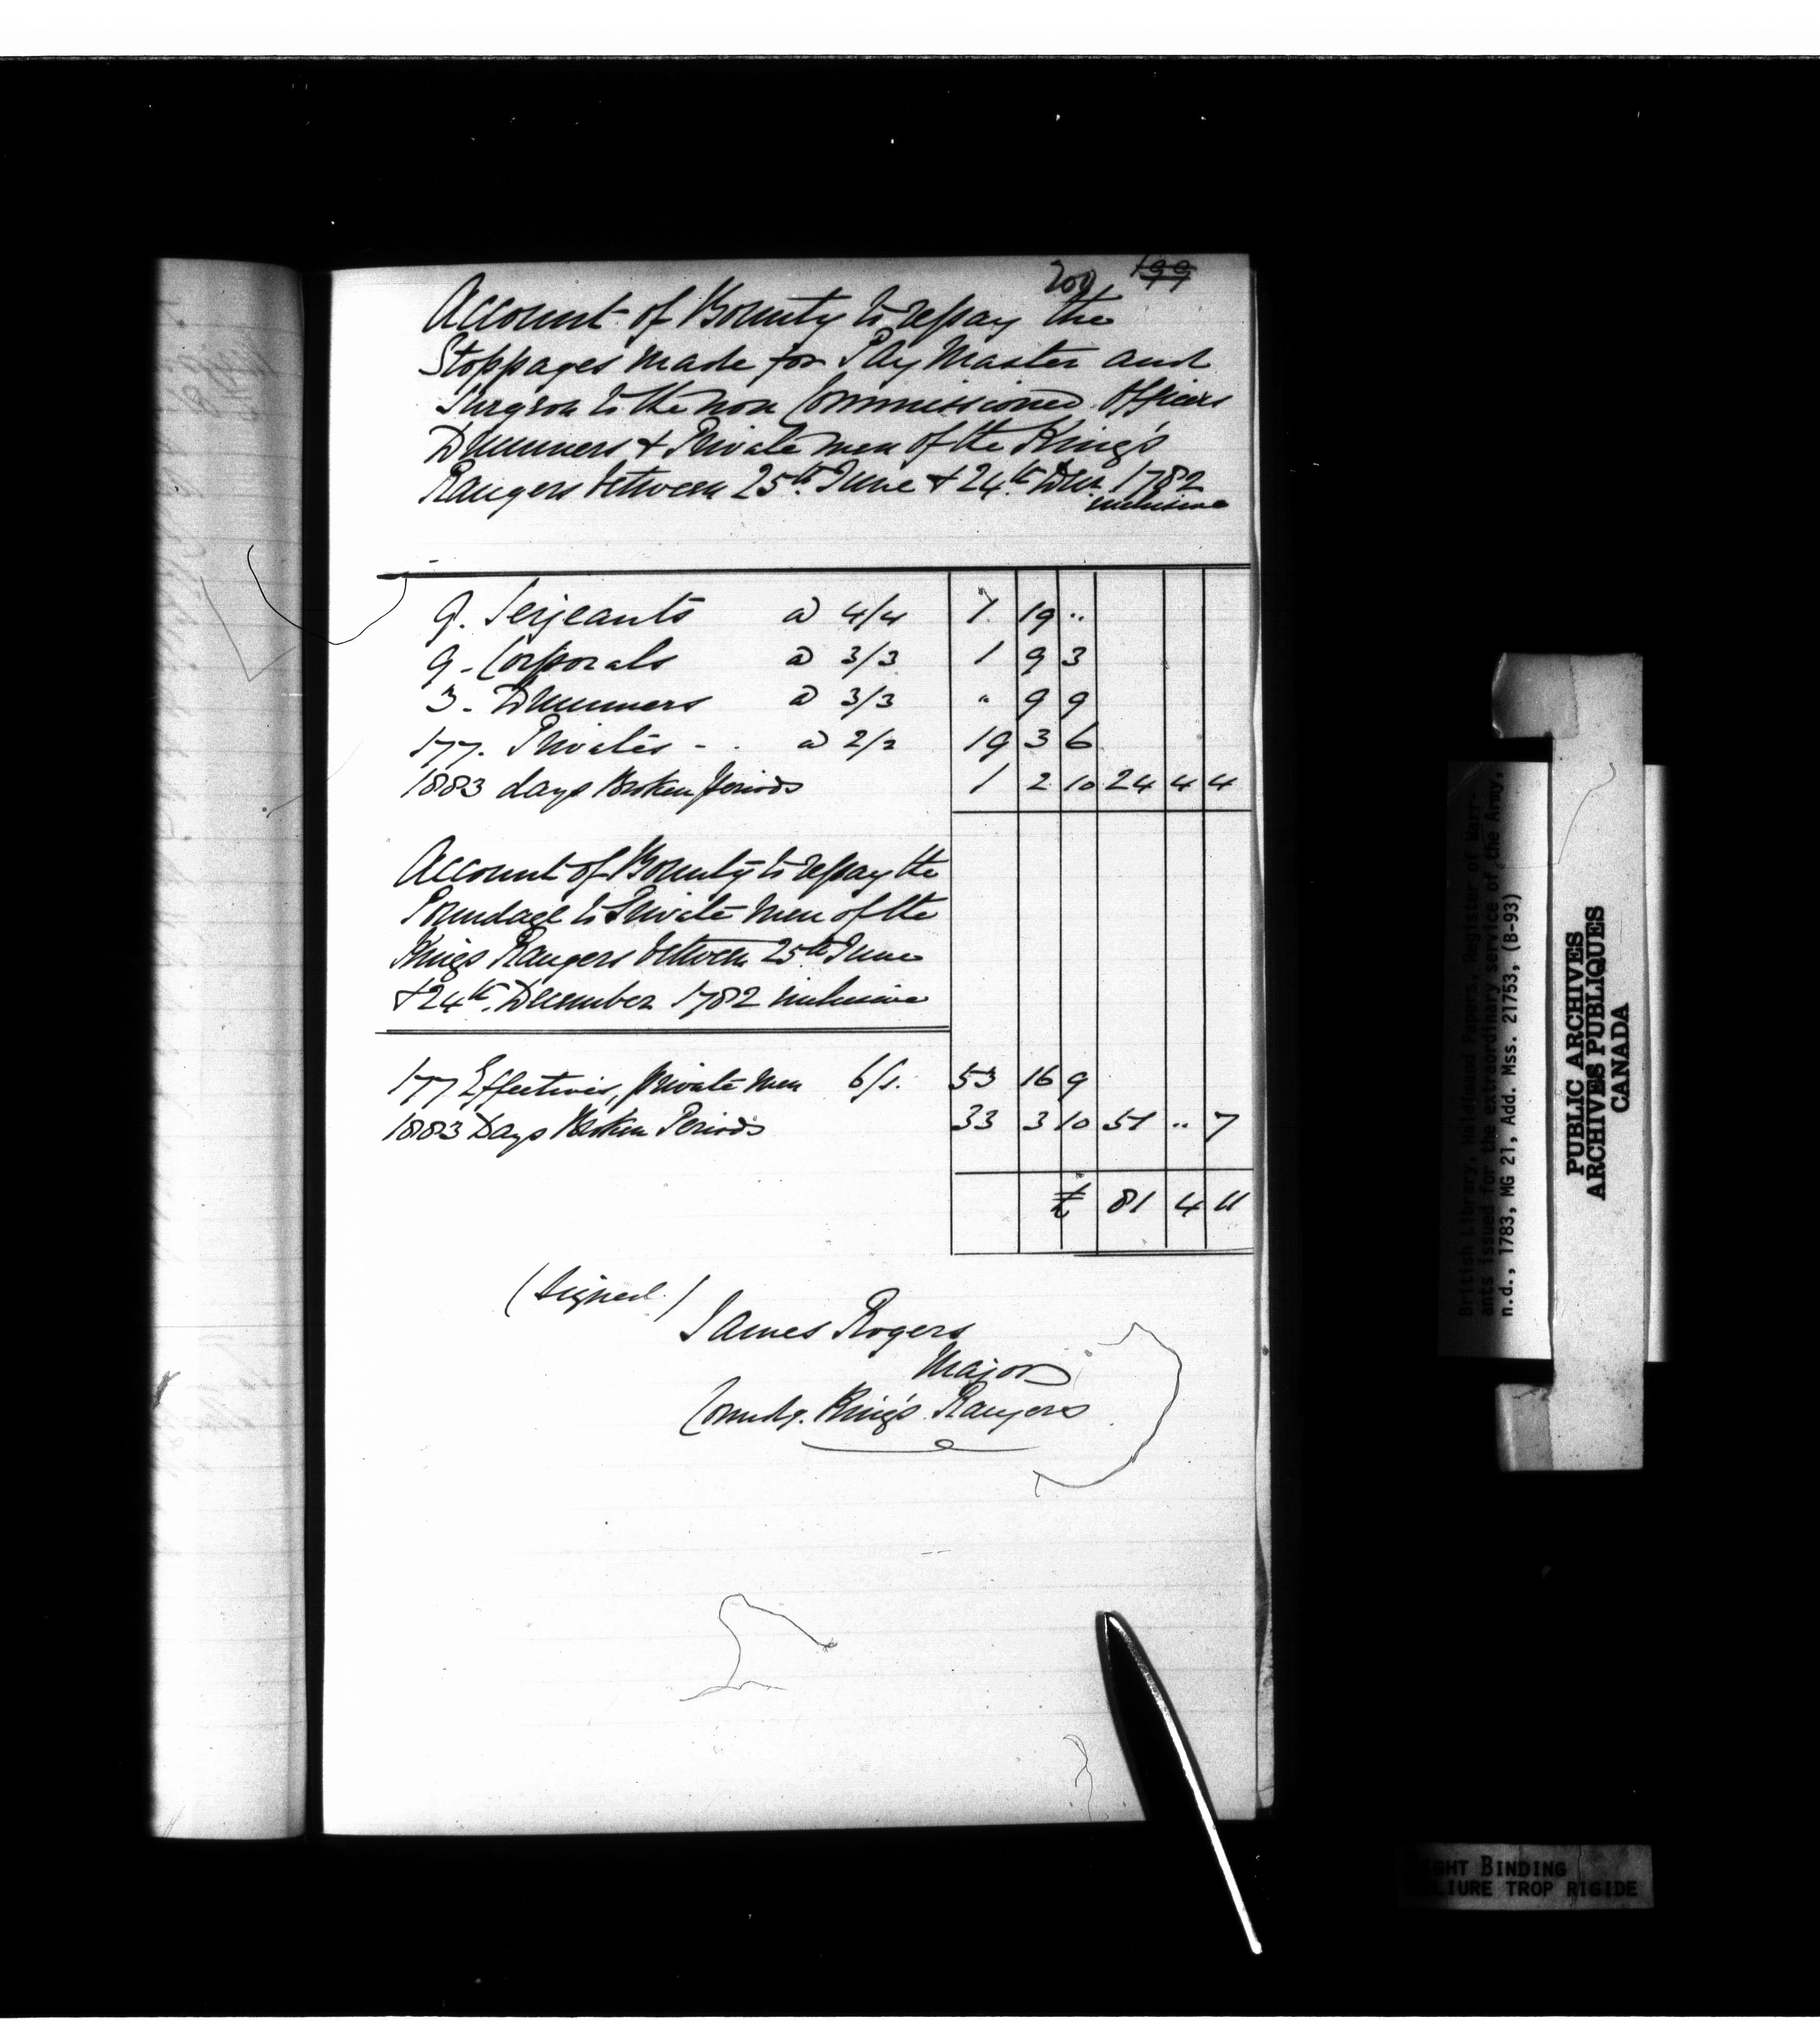 200 199
Account of Bounty to repay the
Stoppages made for Pay Master and
Surgeon to the non Commissioned Officers
Drummers & Private men of the King's
Rangers between 25th June & 24th Decr 1782
inclusive
9. Serjeants @ 4/4 1 19 ..
9 - Corporals @ 3/3 1 9 3
3 - Drummers @ 3/3 " 9 9
177. Privates - . @ 2/2 19 3 6
1883 days Broken Periods 1 2 10 24 4 4
Account of Bounty to repay the
Poundage to Private men of the
Kings Rangers between 25th June
& 24th December 1782 inclusive
177 Effectives, private men 6/1. 53 16 9
1883 Days Broken Periods 33 3 10 57 .. 7
£ 81 4 11
(Signed.)
James Rogers
Major
Comdg. King's Rangers
British Library, Haldimand Papers, Register of Warr-
ants issued for the extraordinary service of the Army,
n.d., 1783, MG 21, Add. Mss. 21753, (B-93)
PUBLIC ARCHIVES
ARCHIVES PUBLIQUES
CANADA
GHT BINDING
LIURE TROP RIGIDE